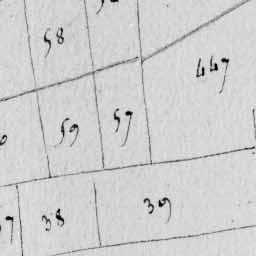 58
447
59 57
38 39